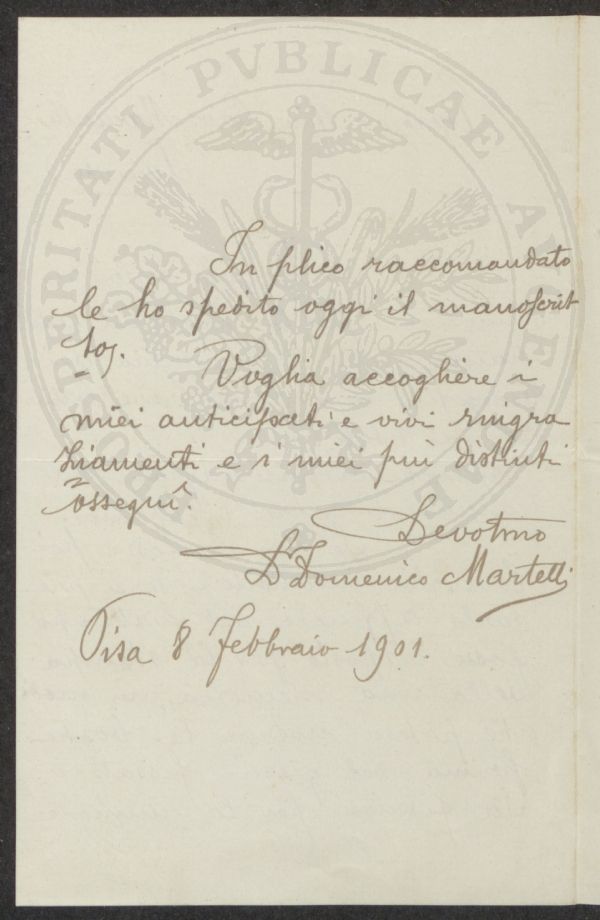 PROSPERITATI PVBLICAE AVGENDAE
In plico raccomandato
le ho spedito oggi il manoscrit
to.
Voglia accogliere i
miei anticipati e vivi ringra
ziamenti e i miei più distinti
ossequi.
Devotmo
D Domenico Martelli
Pisa 8 Febbraio 1901.